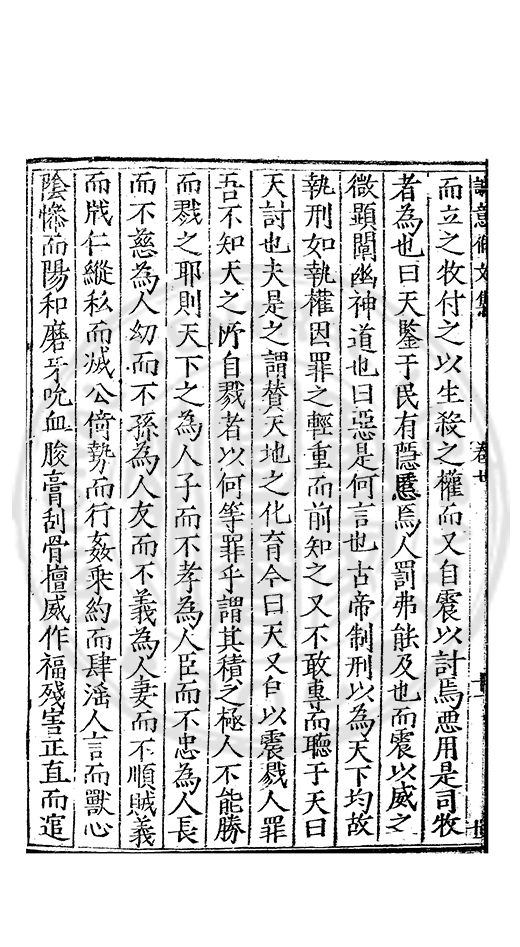 誠意伯文集 卷廿
而立之牧付之以生殺之權而又自震以討焉惡用是司牧
者為也曰天鑒于民有隱慝焉人罰弗能及也而震以威之
微顯闡幽神道也曰惡是何言也古帝制刑以為天下均故
執刑如執權因罪之輕重而前知之又不敢專而聽于天曰
天討也夫是之謂賛天地之化育今曰天又自以震戮人罪
吾不知天之所自戮者以何等罪乎謂其積之極人不能勝
而戮之耶則天下之為人子而不孝為人臣而不忠為人長
而不慈為人幼而不孫為人友而不義為人妻而不順賊義
而戕仁縱私而滅公倚勢而行姦乘約而肆淫人言而獸心
陰慘而陽和磨牙吮血朘膏刮骨擅威作福殘害正直而